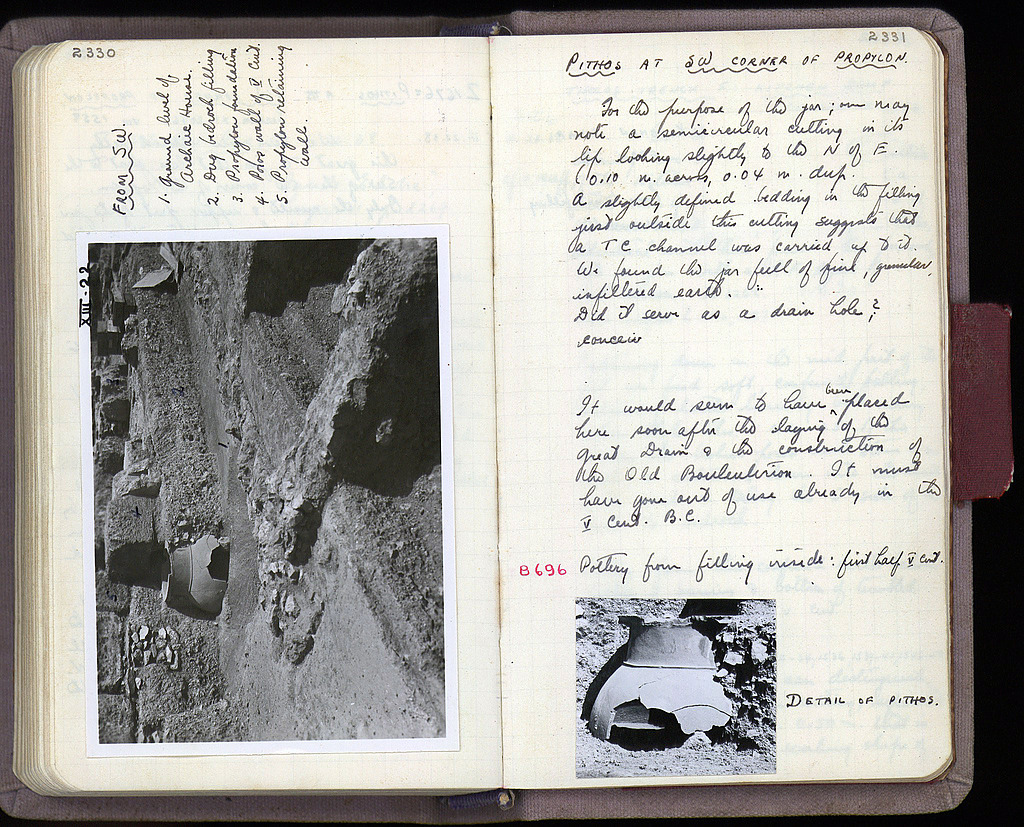 2330
FROM SW.
1. Ground level of
Archaic House.
2. Dug bedrock filling
3. Propylon foundation
4. Poros wall of V Cent.
5. Propylon retaining
wall.
XIII-22
2331
PITHOS AT SW CORNER OF PROPYLON.
For the purpose of the jar; one may
note a semicircular cutting in its
lip looking slightly to the N of E
(0.10 m. across, 0.04 m. deep.
A slightly defined bedding in the filling
just outside this cutting suggests that
a TC channel was carried up to it.
We found the jar full of fine, granular,
infiltered earth.
Did it serve as a drain hole?
It would seem to have been placed
here soon after the laying of the
Great Drain & the construction of
the Old Bouleuterion. It must
have gone out of use already in the
V Cent. B.C.
B696 Pottery from filling inside: first half V cent.
DETAIL OF PITHOS.